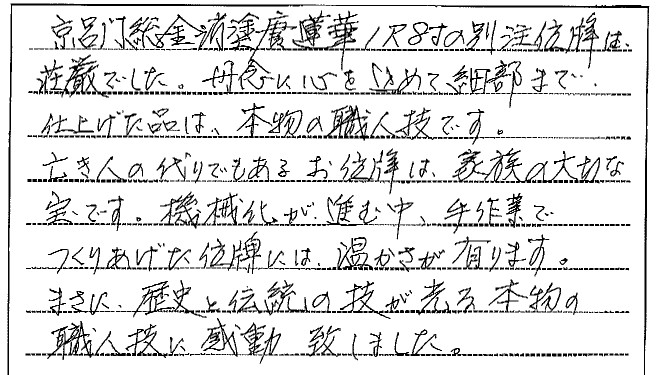 京呂門総金消塗広蓮華1尺8寸の別注位牌は、
荘厳でした。丹念に心を込めて細部まで、
仕上げた品は、本物の職人技です。
亡き人の代りでもあるお位牌は、家族の大切な
宝です。機械化が進む中、手作業で
つくりあげた位牌には、温かさが有ります。
まさに、歴史と伝統の技が光る本物の
職人技に感動致しました。